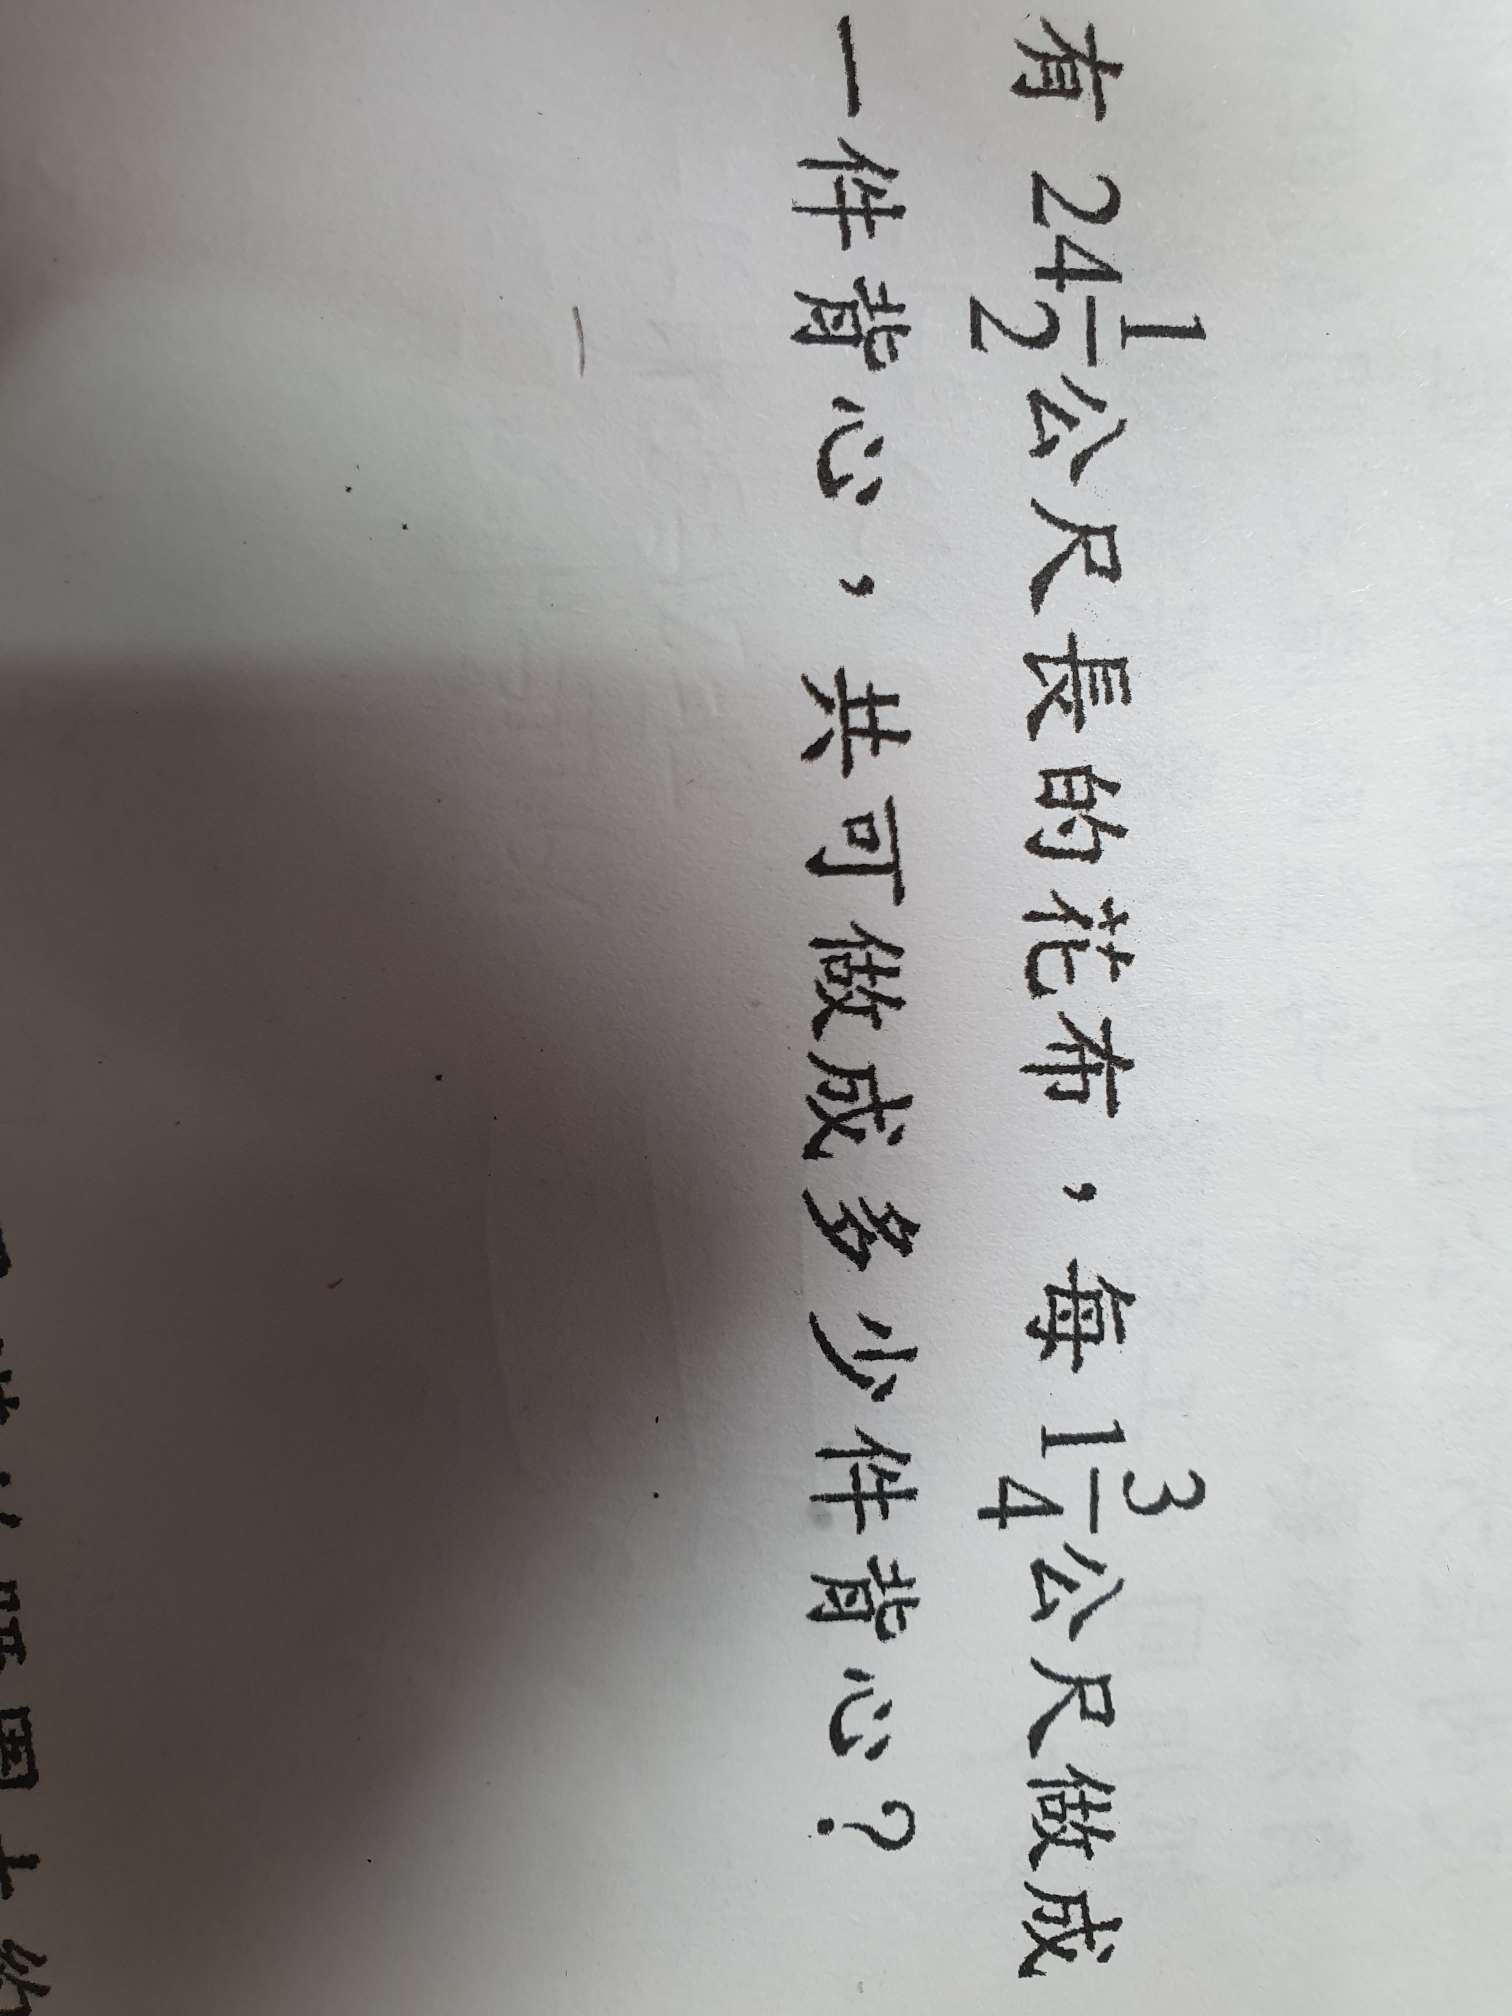 有 24 1/2 公尺長的花布，每 1 3/4 公尺做成
一件背心，共可做成多少件背心？